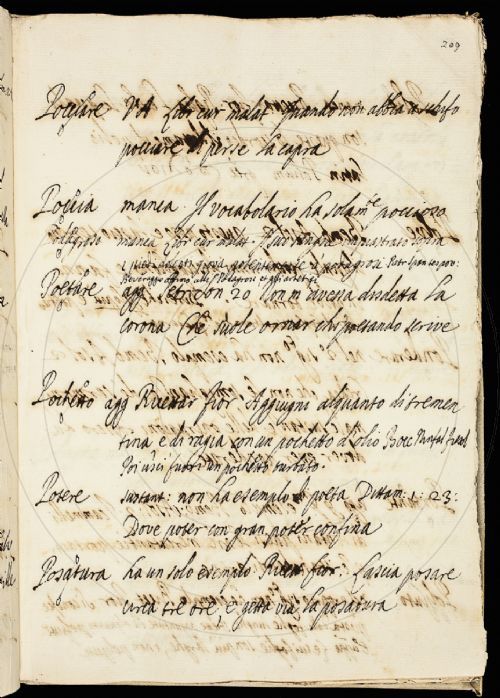 209
Pocciare VA Libr cur malat Quando non abbia a schifo
pocciare il per se la capra
Poccia manca Il vocabolario ha solam.te poccioso
manca Libr cur malat
Poetare agg Petr Son 20 Non m'avessa disdetta la
corona Che suole ornar chi poetando scrive
Pochetto agg Ricettar fior Aggiugni alquanto di tremen
tina e di ragia con un pochetto d'olio Bocc
Poi uscì fuori un pochetto turbato.
Potere sustant: non ha esempio di poeta Dittam: 1: 23:
Dove poter con gran poter confina
Posatura ha un solo esempio Ricett fior: Lascia posare
circa tre ore, e getta via la posatura